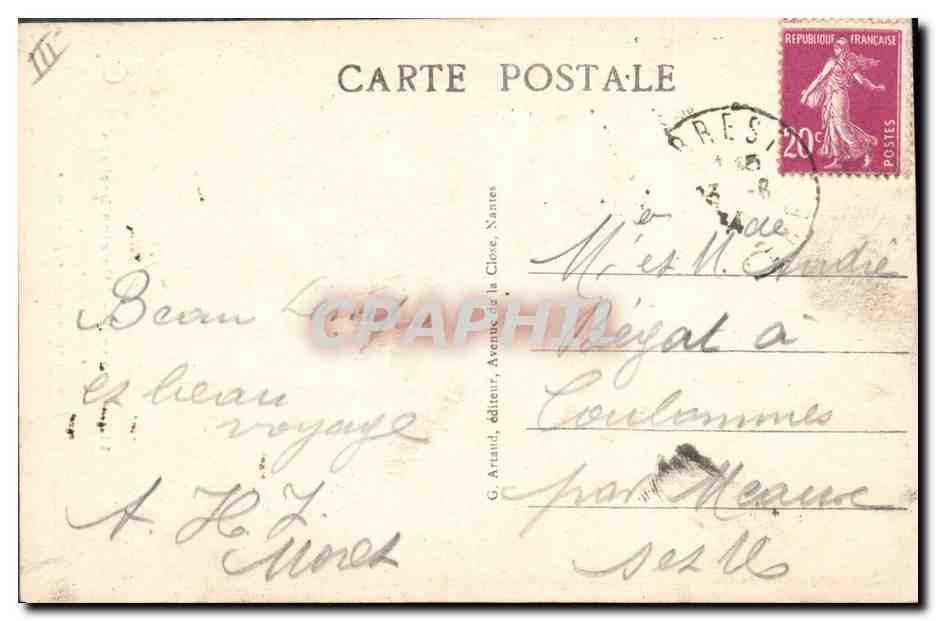 III
CARTE POSTALE
REPUBLIQUE FRANÇAISE
20c
POSTES
BREST
G. Artaud, éditeur, Avenue de la Close, Nantes
Mr et Mde André
Bégat à
Coulommes
par Meaux
S et M
Beau
et beau
voyage
A. H. J.
Moret
CPAPHIL